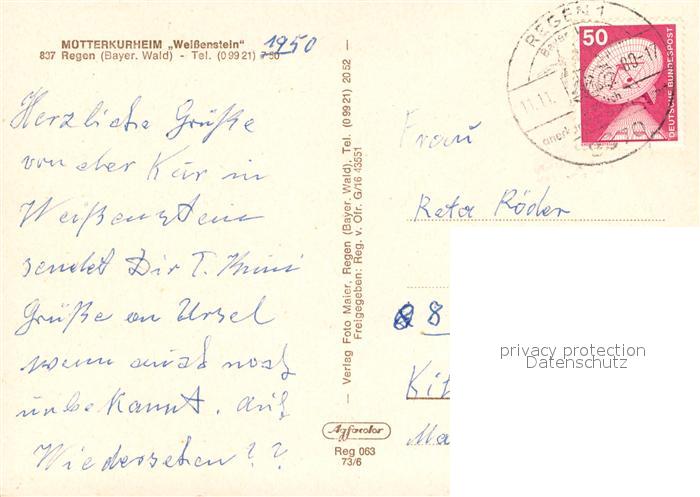 MÜTTERKURHEIM „Weißenstein“ 1950
837 Regen (Bayer. Wald) - Tel. (0 99 21) 7 50
Herzliche Grüße
von der Kur in
Weißenstein
sendet Dir T.
Grüße an Ursel
wenn auch noch
unbekannt. Auf
Wiedersehen??
— Verlag Foto Maier, Regen (Bayer. Wald), Tel. (0 99 21) 20 52 —
Freigegeben: Reg. v. Ofr. G/16 43551
Agfacolor
Reg 063
73/6
REGEN 1
11.11.
50
DEUTSCHE BUNDESPOST
Frau
Reta Röder
8
Kit
Ma
privacy protection
Datenschutz